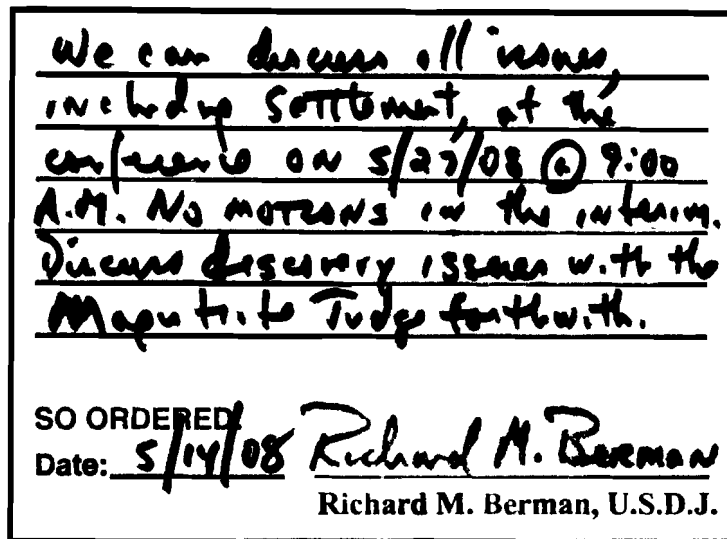 We can discuss all issues,
including settlement, at the
conference on 5/27/08 @ 9:00
A.M. No motions in the interim.
Discuss discovery issues with the
Magistrate Judge forthwith.
SO ORDERED:
Date: 5/14/08 Richard M. Berman
Richard M. Berman, U.S.D.J.